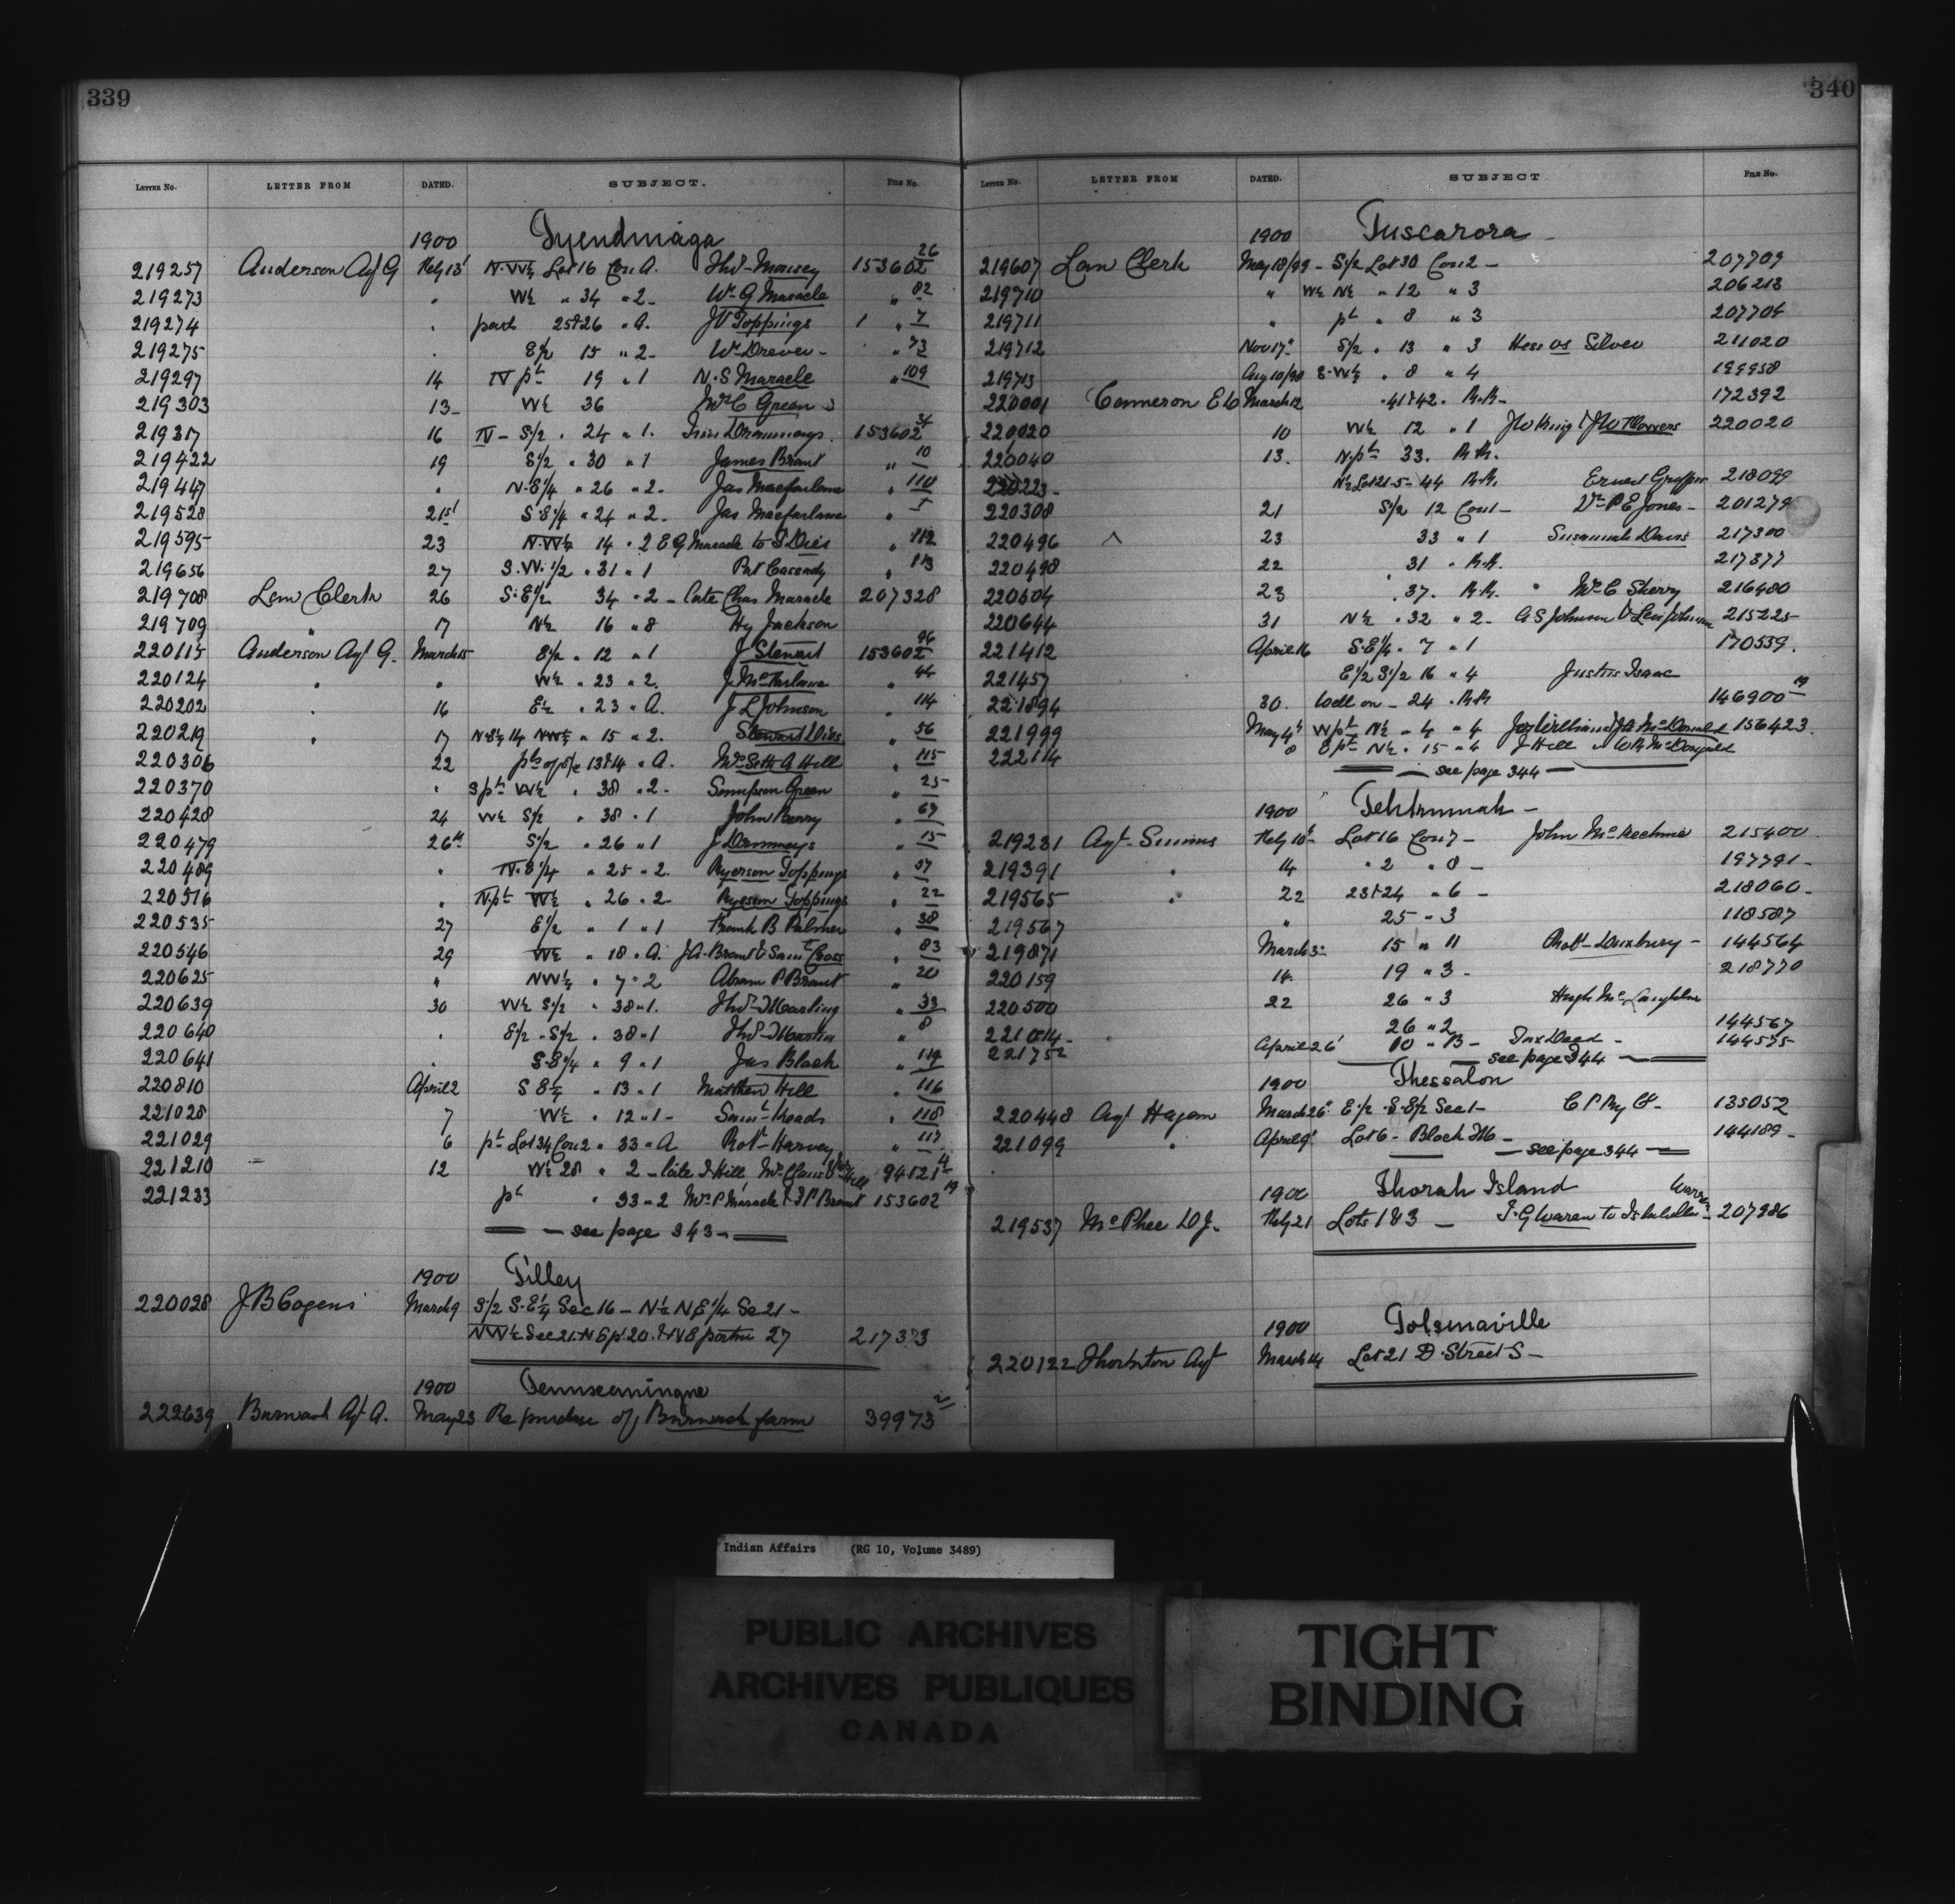 339
LETTER NO. LETTER FROM DATED. SUBJECT. FILE NO.
1900 Tyendinaga
219257 Anderson Agt G Feby 13 N.W½ Lot 16 Con A. Thos Maracey 153602 26
219273 " W½ " 34 " 2 - Wm G Maracle " 82
219274 " part 25 & 26 " A. J V Toppings 1 " 7
219275 " E½ 15 " 2 - Wm Drever - " 73
219297 14 N pt 19 " 1 N. S Maracle " 109
219303 13 - W½ 36 Mrs C Green
219317 16 N - S½ " 24 " 1. 153602 34
219422 19 S½ " 30 " 1 James Brant " 10
219447 " N.E¼ " 26 " 2. Jas Macfarlane " 110
219528 21st S.E¼ " 24 " 2. Jas Macfarlane " 5
219595 23 N.W¼ 14 " 2 E G Maracle to S Dies " 112
219656 27 S.W. ½ " 31 " 1 Pat Cassady " 113
219708 Law Clerk 26 S.E½ 34 " 2 - late Chas Maracle 207328
219709 " 17 N½ 16 " 8 Hy Jackson
220115 Anderson Agt G. March 15 E½ " 12 " 1 J Stewart 153602 96
220124 " " W½ " 23 " 2. J McFarlane " 44
220202 " 16 E½ " 23 " A. J L Johnson " 114
220219 " 17 N.E¼ 14 N.W¼ " 15 " 2. Stewart Dies " 56
220306 22 pts of S/e 13 & 14 " A. Mrs Seth A Hill " 115
220370 " S pt W½ " 38 " 2 - Sampson Green " 25
220428 24 W½ S½ " 38 " 1 John Berry " 67
220479 26th S½ " 26 " 1 J Drummeys " 15
220489 " N.E¼ " 25 " 2. Ryerson Toppings " 37
220516 " N pt W½ " 26 " 2 Ryerson Toppings " 22
220535 27 E½ " 1 " 1 Frank B Palmer " 38
220546 29 W½ " 18 " A. J A. Brant & Saml Cross " 83
220625 " NW¼ " 7 " 2 Abram P Brant " 20
220639 30 W½ S½ " 38 " 1. Thos Marling " 33
220640 " E½ - S½ " 38 " 1 Thos Martin " 8
220641 " S.E¼ " 9 " 1 Jas Black " 119
220810 April 2 S E¼ " 13 " 1 Matthew Hill " 116
221028 7 W½ " 12 " 1 - Saml Keads " 118
221029 6 pt Lot 34 Con 2 " 33 " A Robt Harvey " 117
221210 12 W½ 28 " 2 - late J Hill, Mrs 94121 4
221233 pt " 33 " 2 Mrs P Maracle & J P Brant 153602 19
- see page 343 -
1900 Tilley
220028 J B Cogens March 9 S½ S.E¼ Sec 16 - N½ N.E¼ Se 21 -
NW¼ Sec 21. N E pt 20. & N E portn 27 217323
1900 Temiscamingue
222639 Burwash Agt A. May 23 Re purchase of Burwash farm 39973 2
340
LETTER NO. LETTER FROM DATED. SUBJECT FILE NO.
1900 Tuscarora
219607 Law Clerk May 18/99 - S½ Lot 30 Con 2 - 207709
219710 " W½ N½ " 12 " 3 206213
219711 " pt " 8 " 3 207704
219712 Nov 17 S½ " 13 " 3 Hess vs Silver 211020
219713 Aug 10/98 S.W¼ " 8 " 4 199958
220001 Cameron E D March 12 " 41 & 42 " R.R. 172392
220020 10 W½ 12 " 1 Jno King & Jno Flowers 220020
220040 13. N. pt 33. R.R.
220223 N½ Lot 21-5 - 44 R.R. Ernest 218099
220308 21 S½ 12 Con 1 - Dr P E Jones - 201279
220496 23 33 " 1 Susannah Davis 217300
220498 22 31 " R.R. 217377
220504 23 " 37. R.R. Mrs C Sherry 216480
220644 31 N½ " 32 " 2 - A S Johnson & Levi Johnson 215225
221412 April 16 S.E¼ " 7 " 1 170539.
221457 E½ S½ 16 " 4 Justus Isaac
221894 30. Well on - 24 . R.R 146900 19
221999 May 4th W pt N½ " 4 " 4 Jos Williams & J A McDonald 156423.
222114 8 E pt N½ " 15 " 4 J Hill " W R McDonald
- see page 344 -
1900 Tehkummah -
219231 Agt. Simms Feby 10th Lot 16 Con 7 - John McKechnie 215400
219391 " 14 " 2 " 8 - 197791 -
219565 " 22 23 & 24 " 6 - 218060 -
219567 " 25 " 3 118587
219871 March 3 15 " 11 Robt Duxbury - 144564
220159 14 19 " 3 - 218770
220500 22 26 " 3 Hugh McLaughlin
221014 - 26 " 2 144567
221752 April 26 10 " B - Deed - 144535
- see page 344 -
1900 Thessalon
220448 Agt Hagan March 26 E½ - S.E½ Sec 1 - C P Ry Co - 135052
221099 " April 9 Lot 6 - Block - 144189 -
- see page 344 -
1900 Thorah Island
219537 McPhee D J. Feby 21 Lots 1 & 3 - J. G Waren to Isabella Warren - 207986
1900 Tolsmaville
220122 Thorburn Agt March 14 Lot 21 D. Street S -
Indian Affairs (RG 10, Volume 3489)
PUBLIC ARCHIVES
ARCHIVES PUBLIQUES
CANADA
TIGHT
BINDING